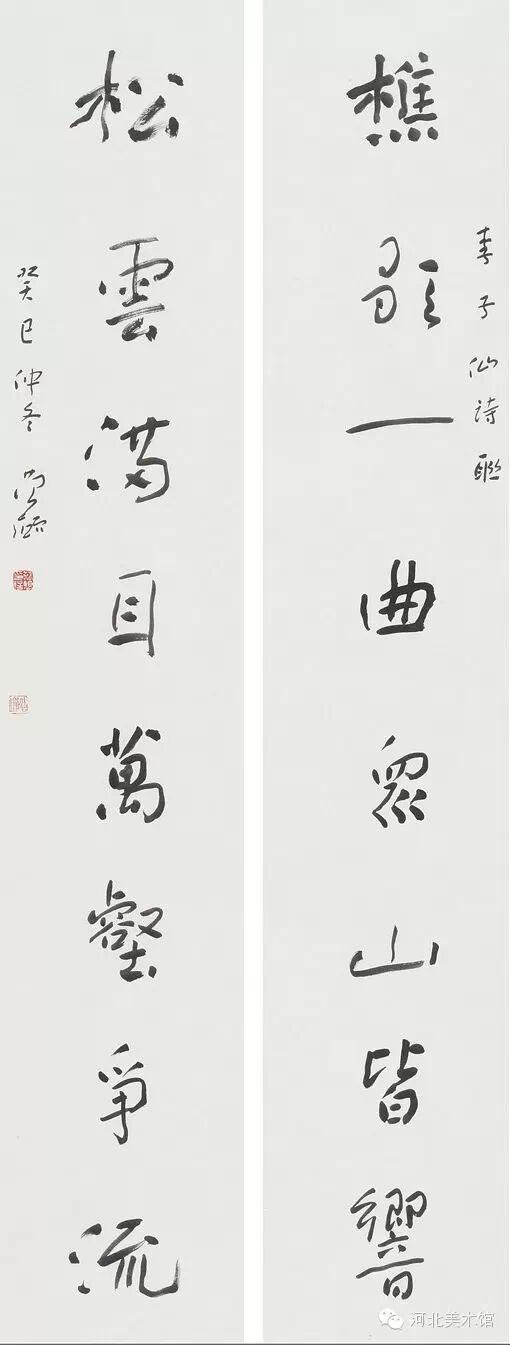 李子仙詩聯
樵歌一曲眾山皆響
松雲滿目萬壑爭流
癸巳仲冬
河北美术馆